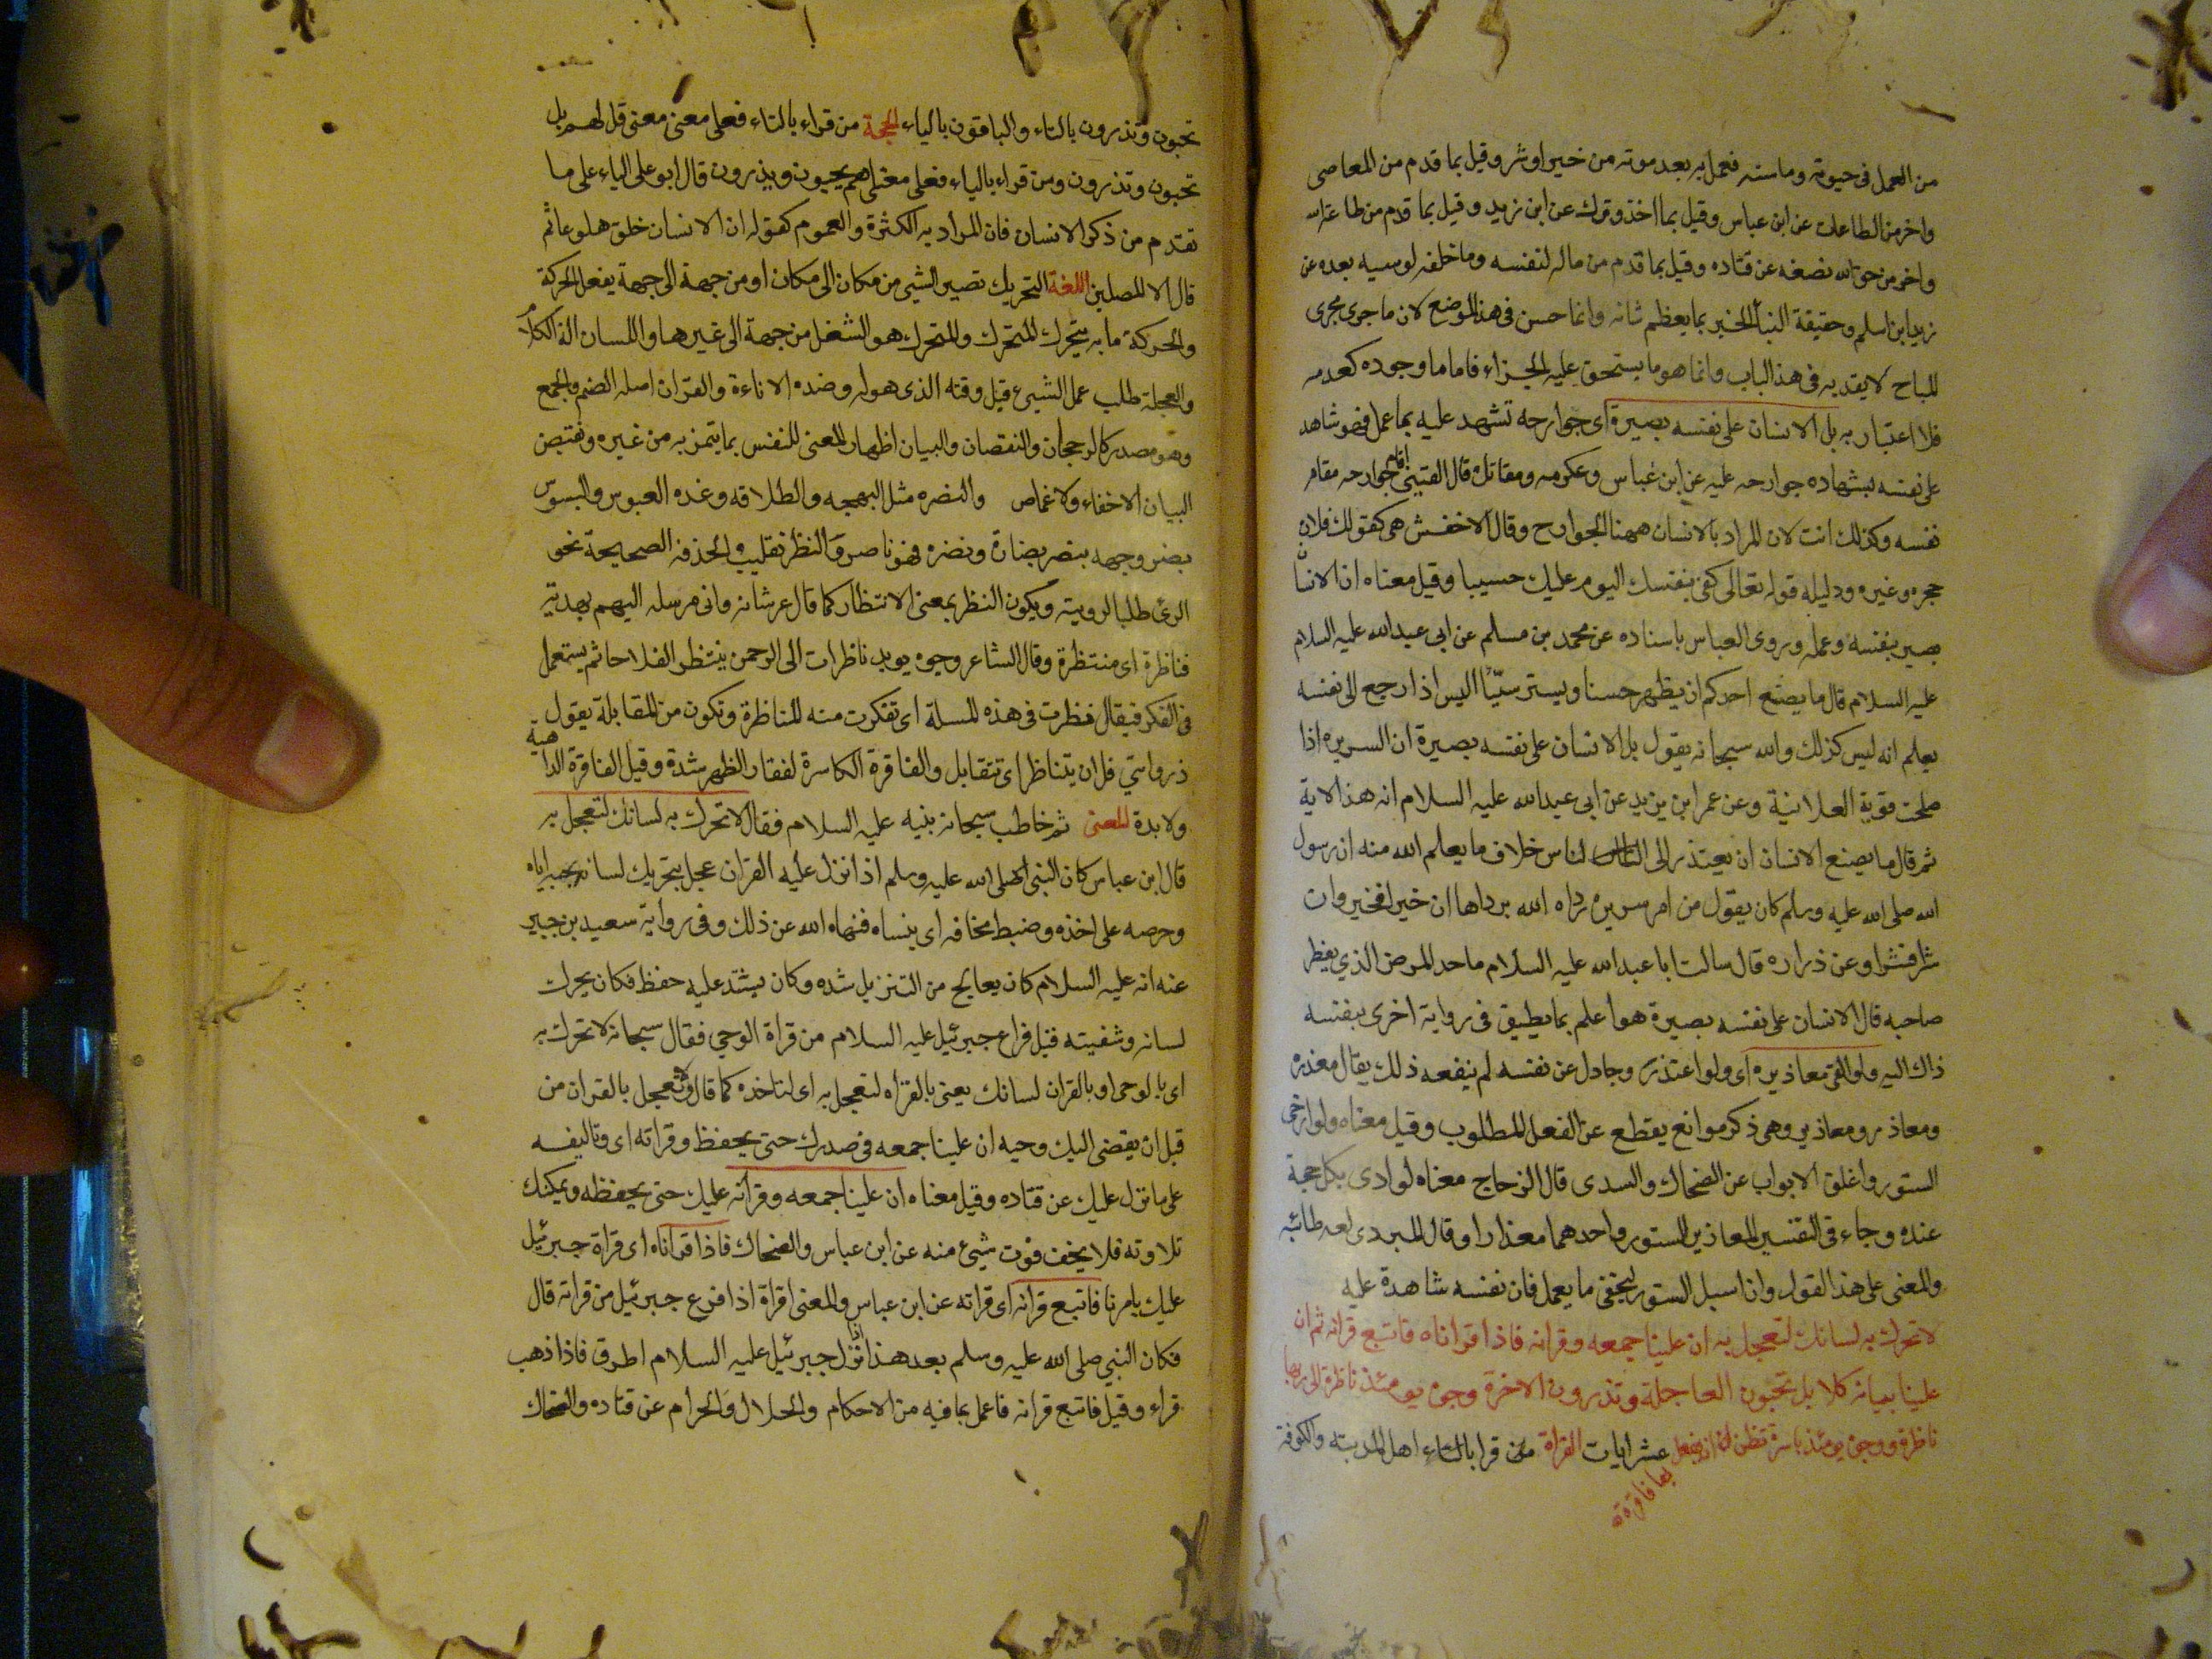 من العمل فى حيوته وما سنه فعمل به بعد موته من خير او شر وقيل بما قدم من المعاصى
واخر من الطاعات عن ابن عباس وقيل بما اخذ وترك عن ابن زيد وقيل بما قدم من طاعة الله
واخر من حق الله فضيعه عن قتاده وقيل بما قدم من ماله لنفسه وما خلفه لورثته بعده عن
زيد ابن اسلم وحقيقة النبأ الخبر بما يعظم شانه وانما حسن فى هذا الموضع لان ما جرى مجرى
المباح لا يعتد به فى هذا الباب وانما هو ما يستحق عليه الجزاء فاما ما وجوده كعدمه
فلا اعتبار به بل الانسان على نفسه بصيرة اى جوارحه تشهد عليه بما عمل فهو شاهد
على نفسه بشهاده جوارحه عليه عن ابن عباس وعكرمه ومقاتل قال القتيبى اقام جوارحه مقام
نفسه وكذلك انت لان المراد بالانسان ههنا الجوارح وقال الاخفش هى كقولك فلان
حجره وغيره ودليله قوله تعالى كفى بنفسك اليوم عليك حسيبا وقيل معناه ان الانسان
بصير بنفسه وعمله وروى العباس باسناده عن محمد بن مسلم عن ابى عبد الله عليه السلام
عليه السلام قال ما يصنع احدكم ان يظهر حسنا ويستر سيّئا اليس اذا رجع الى نفسه
يعلم انه ليس كذلك والله سبحانه يقول بل الانسان على نفسه بصيرة ان السريره اذا
صلحت قوية العلانية وعن عمر ابن يزيد عن ابى عبد الله عليه السلام انه هذا الاية
ثم قال ما يصنع الانسان ان يعتذر الى الناس خلاف ما يعلم الله منه ان رسول
الله صلى الله عليه وسلم كان يقول من اسر سريره رداه الله برداها ان خيرا فخير وان
شرا فشر او عن زراره قال سالت ابا عبد الله عليه السلام ما حد المرض الذي يفطر
صاحبه قال الانسان على نفسه بصيرة هو اعلم بما يطيق فى رواية اخرى بنفسه
ذاك اليه ولو القى معاذيره اى ولو اعتذر وجادل عن نفسه لم ينفعه ذلك يقال معذره
ومعاذر ومعاذير وهى ذكر موانع يقطع عن الفعل المطلوب وقيل معناه ولو ارخى
الستور واغلق الابواب عن الضحاك والسدى قال الزجاج معناه لو ادى بكل حجة
عنده وجاء فى التفسير المعاذير الستور واحدهما معذار وقال المبرد هى لغه طائيه
والمعنى على هذا القول وان اسبل الستور ليخفى ما يعمل فان نفسه شاهدة عليه
لا تحرك به لسانك لتعجل به ان علينا جمعه وقرانه فاذا قراناه فاتبع قرانه ثم ان
علينا بيانه كلا بل تحبون العاجلة وتذرون الاخرة وجوه يومئذ ناظرة الى ربها
ناظرة ووجوه يومئذ باسرة تظن ان يفعل عشر ايات القراة من قرا بالتاء اهل المدينه والكوفة
بها فاقرة
تحبون وتذرون بالتاء والباقون بالياء الحجة من قراء بالتاء فعلى معنى معنى قل لهم بل
تحبون وتذرون ومن قراء بالياء فعلى معنى هم يحبون ويذرون قال ابو على الياء على ما
تقدم من ذكر الانسان فان المراد به الكثرة والعموم كقوله ان الانسان خلق هلوعا ثم
قال الا المصلين اللغة التحريك تصيير الشيء من مكان الى مكان او من جهة الى جهة بفعل الحركة
والحركة ما به يتحرك المتحرك والمتحرك هو الشغل من جهة الى غيرها واللسان الة الكلام
والعجلة طلب عمل الشيء قبل وقته الذى هو له وضده الاناءة والقران اصله الضم والجمع
وهو مصدر كالرجحان والنقصان والبيان اظهار المعنى للنفس بما يتميز به من غيره ونقيض
البيان الاخفاء ولا غماص والنضره مثل البهجه والطلاقه وعنده العبوس والبسوس
نضر وجهه ينضر نضارة ونضره فهو ناضر والنظر تقليب الحذقه الصحيحة نحو
الرئ طلبا لروية ويكون النظر بمعنى الانتظار كما قال عز شانه وانى مرسله اليهم بهدية
فناظرة اى منتظرة وقال الشاعر وجوه يوم بدر ناظرات الى الرحمن ينتظر الفلاحا ثم يستعمل
فى الفكر فيقال نظرت فى هذه المسلة اى تفكرت منه المناظرة وتكون من المقابلة يقول
دور بنى فلان يتناظر اى تتقابل والفاقرة الكاسرة لفقار الظهر شدة وقيل الفاقرة الداهية
ولابدة المعنى ثم خاطب سبحانه نبيه عليه السلام فقال لا تحرك به لسانك لتعجل به
قال ابن عباس كان النبى صلى الله عليه وسلم اذا نزل عليه القران عجل بتحريك لسانه لحبه اياه
وحرصه على اخذه وضبط مخافه اى ينساه فنهاه الله عن ذلك وفى رواية سعيد بن جبير
عنه انه عليه السلام كان يعالج من التنزيل شده وكان يشتد عليه حفظ فكان يحرك
لسانه وشفيته قبل فراغ جبرئيل عليه السلام من قراة الوحي فقال سبحانه لا تحرك به
اى بالوحى او بالقران لسانك يعنى بالقراه لتعجل به اى لتاخذه كما قال ولا تعجل بالقران من
قبل ان يقضى اليك وحيه ان علينا جمعه فى صدرك حتى يحفظ وقراته اى وتاليفه
على ما نزل عليك عن قتاده وقيل معناه ان علينا جمعه وقرانه عليك حتى يحفظه ويمكنك
تلاوته فلا يخف فوت شيئ منه عن ابن عباس والضحاك فاذا قراناه اى قراة جبرئيل
عليك بامرنا فاتبع قرانه اى قراته عن ابن عباس والمعنى اقراة اذا فرغ جبرئيل من قراته قال
فكان النبي صلى الله عليه وسلم بعد هذا اذا نزل جبرئيل عليه السلام اطرق فاذا ذهب
قراء وقيل فاتبع قرانه فاعمل بما فيه من الاحكام والحلال والحرام عن قتاده والضحاك